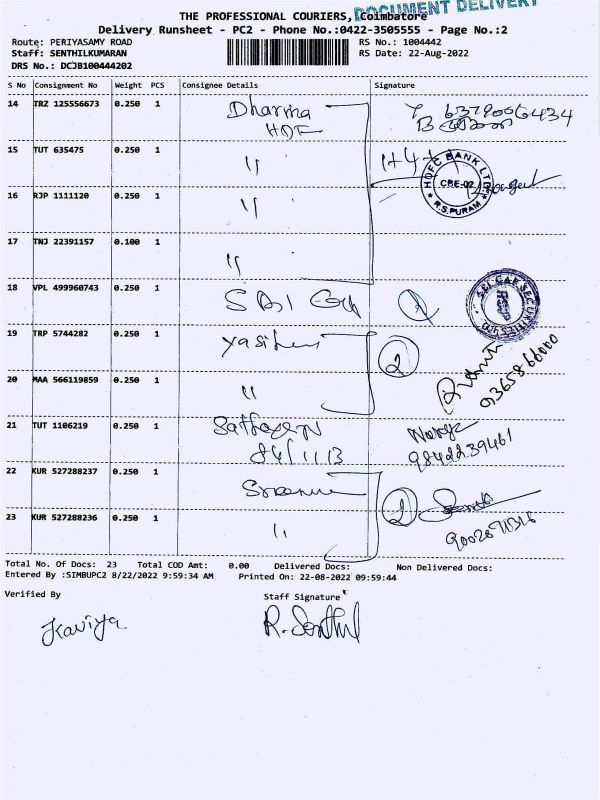 DOCUMENT DELIVERY
THE PROFESSIONAL COURIERS, Coimbatore
Delivery Runsheet - PC2 - Phone No.:0422-3505555 - Page No.:2
Route: PERIYASAMY ROAD
RS No.: 1004442
Staff: SENTHILKUMARAN
RS Date: 22-Aug-2022
DRS No.: DCJB100444202
S No Consignment No Weight PCS Consignee Details Signature
14 TRZ 125556673 0.250 1 Dharma 6379006434
HDF
15 TUT 635475 0.250 1 " 1+4+
HDFC BANK LTD
CBE-02
R.S.PURAM
16 RJP 1111120 0.250 1 "
17 TNJ 22391157 0.100 1 "
18 VPL 499960743 0.250 1 1
19 TRP 5744282 0.250 1 2
20 MAA 566119859 0.250 1 " 9365866000
21 TUT 1106219 0.250 1 9842239461
84/1113
22 KUR 527288237 0.250 1 2
23 KUR 527288236 0.250 1 "
Total No. Of Docs: 23 Total COD Amt: 0.00 Delivered Docs: Non Delivered Docs:
Entered By :SIMBUPC2 8/22/2022 9:59:34 AM Printed On: 22-08-2022 09:59:44
Verified By Staff Signature
Kaviya R. Senthil